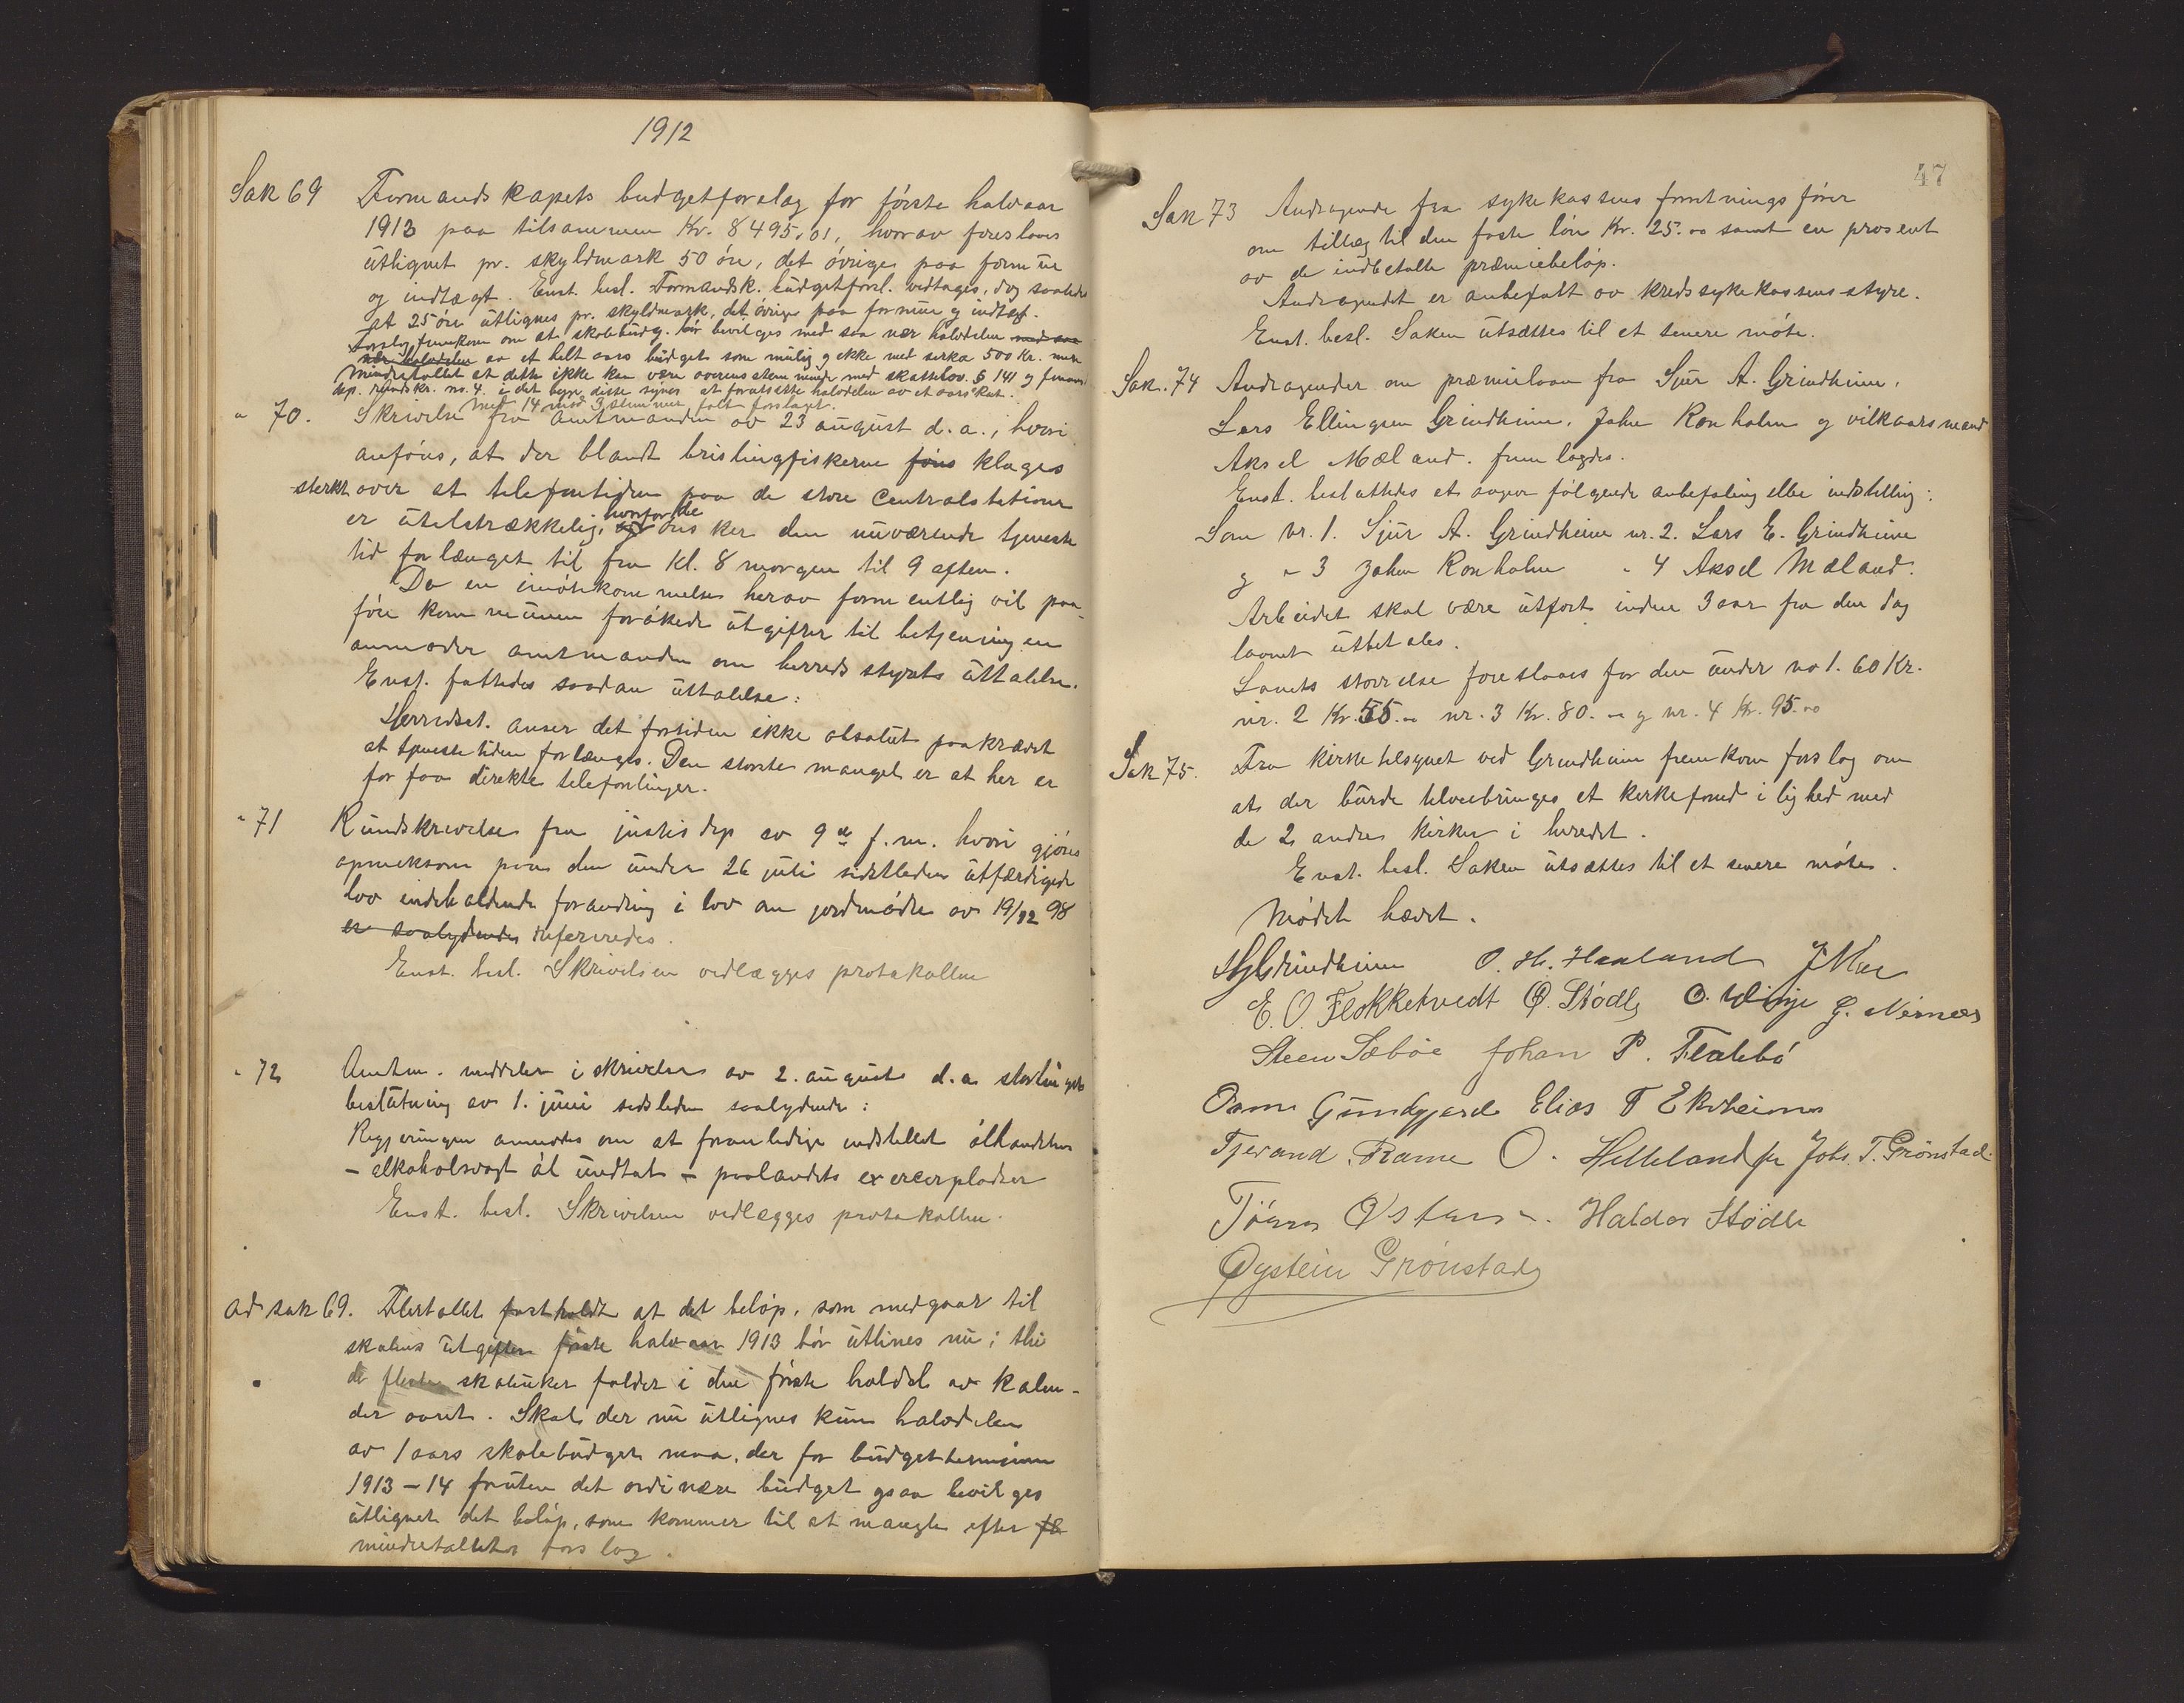 1912
Sak 69 Formandskapets budgetforslag for første halvaar
1913 paa tilsammen Kr. 8495,01, hvorav foreslaaes
utlignet pr. skyldmark 50 øre, det øvriges paa formue
og indtægt. Enst. besl. Formandsk. budgetforsl. vedtages, dog saaledes
at 25 øre utlignes pr. skyldmark, det øvrige paa formue og indtægt.
Forslag fremkom om at skolebudg. bør bevilges med saa nær halvdelen med saa
nær halvdelen av et helt aars budget som mulig og ikke med serka 500 Kr. mere
Mindretallet at dette ikke kan være overensstemmende med skattelov. § 141 og finans
dep. rundskr. no. 4. i det begge disse synes at forutsætte halvdelen av et aars skat.
Med 14 mod 3 stemmer falt forslaget.
" 70. Skrivelse fra amtmanden av 23 august d.a., hvori
anføres, at der blandt brislingfiskerne føres klages
sterkt over at telefontiden paa de store centralstationer
er utelstrækkelig, hvorfor de ønsker den nuværende tjeneste
tid forlænget til fra kl. 8 morgen til 9 aften.
Da en imøtekommelse herav formentlig vil paa-
føre kommunen forøkede utgifter til betjeningen
anmoder amtmanden om herredsstyrets uttalelse.
Enst. fattedes saadan uttalelse:
Herredst. anser det fortiden ikke absolut paakrævet
at tjenestetiden forlænges. Den største mangel er at her er
for faa direkte telefonlinjer.
" 71 Rundskrivelse fra justisdep av 9de f.m. hvori gjøres
opmerksom paa den under 26 juli sidstleden utfærdigede
lov indeholdende forandring i lov om jordmødre av 19/12 98
er saalydende refereredes.
Enst. besl. Skrivelsen vedlægges protokollen
" 72 Amtm. meddeler i skrivelse av 2. august d.a. stortingets
beslutning av 1. juni sidsleden saalydende:
Regjeringen anmodes om at foranledige indstillet ølhandelen
– alkoholsvagt øl undtat – paalandets exercerpladser
Enst. besl. Skrivelsen vedlægges protokollen.
ad sak 69. Flertallet fastholdt at det beløp, som medgaar til
skolens utgifter første halvaar 1913 bør utlines nu; thi
de fleste skoleuker falder i den første halvdel av kalen-
der aaret. Skal der nu utlignes kun halvdelen
av 1 aars skolebudget maa der for budgetterminen
1913–14 foruten det ordinære budget ogsaa bevilges
utlignet det beløp, som kommer til at mangle efter fl
mindretallets forslag.
47
Sak 73 Andragende fra sykekassens forretningsfører
om tillæg til den faste løn Kr. 25.00 samt en prosent
av de indbetalte præmiebeløp.
Andragendet er anbefalt av kredssykekassens styre.
Enst. besl. Saken utsættes til et senere møte.
Sak. 74 Andragender om præmielaan fra Sjur A. Grindheim,
Lars Ellingsen Grindheim, Johan Ronholm og vilkaarsmand
Aksel Mæland. fremlagdes.
Enst. besluttedes at avgive følgende anbefaling eller indstilling:
Som nr. 1. Sjur A. Grindheim nr. 2. Lars E. Grindheim
og " 3 Johan Ronholm " 4 Aksel Mæland.
Arbeidet skal være utført inden 3 aar fra den dag
laanet utbetales.
Lanets størrelse foreslaaes for den under no 1. 60 Kr.
nr. 2 Kr. 55.00 nr. 3 Kr. 80.00 og nr. 4 Kr. 95.00
Sak 75. Fra kirketilsynet ved Grindheim fremkom forslag om
at der burde tilveiebringes et kirkefond i lighed med
de 2 andre kirker i heredet.
Enst. besl. Saken utsættes til et senere møte.
Mødet hævet.
Grindheim O. H. Haaland
E. O. Flokketvedt Ø. Stødle O. Vinje G. Nernæs
Steen Sæbøe Johan P. Flatebø
Gundgjerde Elias T Ekrheim
Tjerand Rame O. Helleland fr Johs. T. Grønstad
Tørres Østens. Haldor Stødle
Øystein Grønstad